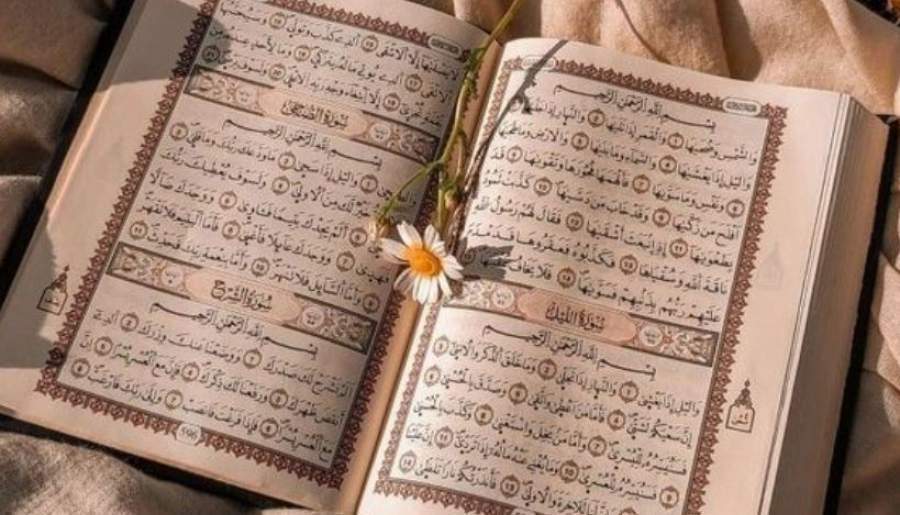 بِسْمِ اللَّهِ الرَّحْمَٰنِ الرَّحِيمِ
وَالشَّمْسِ وَضُحَىٰهَا ١ وَالْقَمَرِ إِذَا تَلَىٰهَا ٢ وَالنَّهَارِ إِذَا جَلَّىٰهَا ٣
وَالَّيْلِ إِذَا يَغْشَىٰهَا ٤ وَالسَّمَآءِ وَمَا بَنَىٰهَا ٥ وَالْأَرْضِ وَمَا طَحَىٰهَا ٦
وَنَفْسٍ وَمَا سَوَّىٰهَا ٧ فَأَلْهَمَهَا فُجُورَهَا وَتَقْوَىٰهَا ٨ قَدْ
أَفْلَحَ مَن زَكَّىٰهَا ٩ وَقَدْ خَابَ مَن دَسَّىٰهَا ١٠ كَذَّبَتْ ثَمُودُ
بِطَغْوَىٰهَا ١١ إِذِ انۢبَعَثَ أَشْقَىٰهَا ١٢ فَقَالَ لَهُمْ رَسُولُ اللَّهِ
نَاقَةَ اللَّهِ وَسُقْيَٰهَا ١٣ فَكَذَّبُوهُ فَعَقَرُوهَا فَدَمْدَمَ
عَلَيْهِمْ رَبُّهُم بِذَنۢبِهِمْ فَسَوَّىٰهَا ١٤ فَلَا يَخَافُ
سُورَةُ الَّيْلِ
بِسْمِ اللَّهِ الرَّحْمَٰنِ الرَّحِيمِ
وَالَّيْلِ إِذَا يَغْشَىٰ ١ وَالنَّهَارِ إِذَا تَجَلَّىٰ ٢ وَمَا خَلَقَ الذَّكَرَ وَالْأُنثَىٰ ٣
إِنَّ سَعْيَكُمْ لَشَتَّىٰ ٤ فَأَمَّا مَنْ أَعْطَىٰ وَاتَّقَىٰ ٥ وَصَدَّقَ بِالْحُسْنَىٰ ٦
فَسَنُيَسِّرُهُۥ لِلْيُسْرَىٰ ٧ وَأَمَّا مَنۢ بَخِلَ وَاسْتَغْنَىٰ ٨ وَكَذَّبَ بِالْحُسْنَىٰ ٩
فَسَنُيَسِّرُهُۥ لِلْعُسْرَىٰ ١٠ وَمَا يُغْنِى عَنْهُ مَالُهُۥٓ إِذَا تَرَدَّىٰٓ ١١ إِنَّ عَلَيْنَا
لَنَا لَلْءَاخِرَةَ وَالْأُولَىٰ ١٣ فَأَنذَرْتُكُمْ نَارًا تَلَظَّىٰ ١٤
لَا يَصْلَىٰهَآ إِلَّا الْأَشْقَى ١٥ الَّذِى كَذَّبَ وَتَوَلَّىٰ ١٦ وَسَيُجَنَّبُهَا
الْأَتْقَى ١٧ الَّذِى يُؤْتِى مَالَهُۥ يَتَزَكَّىٰ ١٨ وَمَا لِأَحَدٍ عِندَهُۥ مِن
نِّعْمَةٍ تُجْزَىٰٓ ١٩ إِلَّا ابْتِغَآءَ وَجْهِ رَبِّهِ الْأَعْلَىٰ ٢٠ وَلَسَوْفَ
سُورَةُ الضُّحَىٰ
بِسْمِ اللَّهِ الرَّحْمَٰنِ الرَّحِيمِ
وَالَّيْلِ إِذَا سَجَىٰ ٢ مَا وَدَّعَكَ رَبُّكَ وَمَا قَلَىٰ ٣
خَيْرٌ لَّكَ مِنَ الْأُولَىٰ ٤ وَلَسَوْفَ يُعْطِيكَ رَبُّكَ
أَلَمْ يَجِدْكَ يَتِيمًا فَـَٔاوَىٰ ٦ وَوَجَدَكَ ضَآلًّا
فَهَدَىٰ ٧ وَوَجَدَكَ عَآئِلًا فَأَغْنَىٰ ٨ فَأَمَّا الْيَتِيمَ فَلَا تَقْهَرْ ٩
وَأَمَّا السَّآئِلَ فَلَا تَنْهَرْ ١٠ وَأَمَّا بِنِعْمَةِ رَبِّكَ فَحَدِّثْ ١١
سُورَةُ الشَّرْحِ
بِسْمِ اللَّهِ الرَّحْمَٰنِ الرَّحِيمِ
أَلَمْ نَشْرَحْ لَكَ صَدْرَكَ ١ وَوَضَعْنَا عَنكَ وِزْرَكَ ٢ الَّذِىٓ
أَنقَضَ ظَهْرَكَ ٣ وَرَفَعْنَا لَكَ ذِكْرَكَ ٤ فَإِنَّ مَعَ الْعُسْرِ يُسْرًا ٥ إِنَّ
مَعَ الْعُسْرِ يُسْرًا ٦ فَإِذَا فَرَغْتَ فَانصَبْ ٧ وَإِلَىٰ رَبِّكَ فَارْغَب ٨